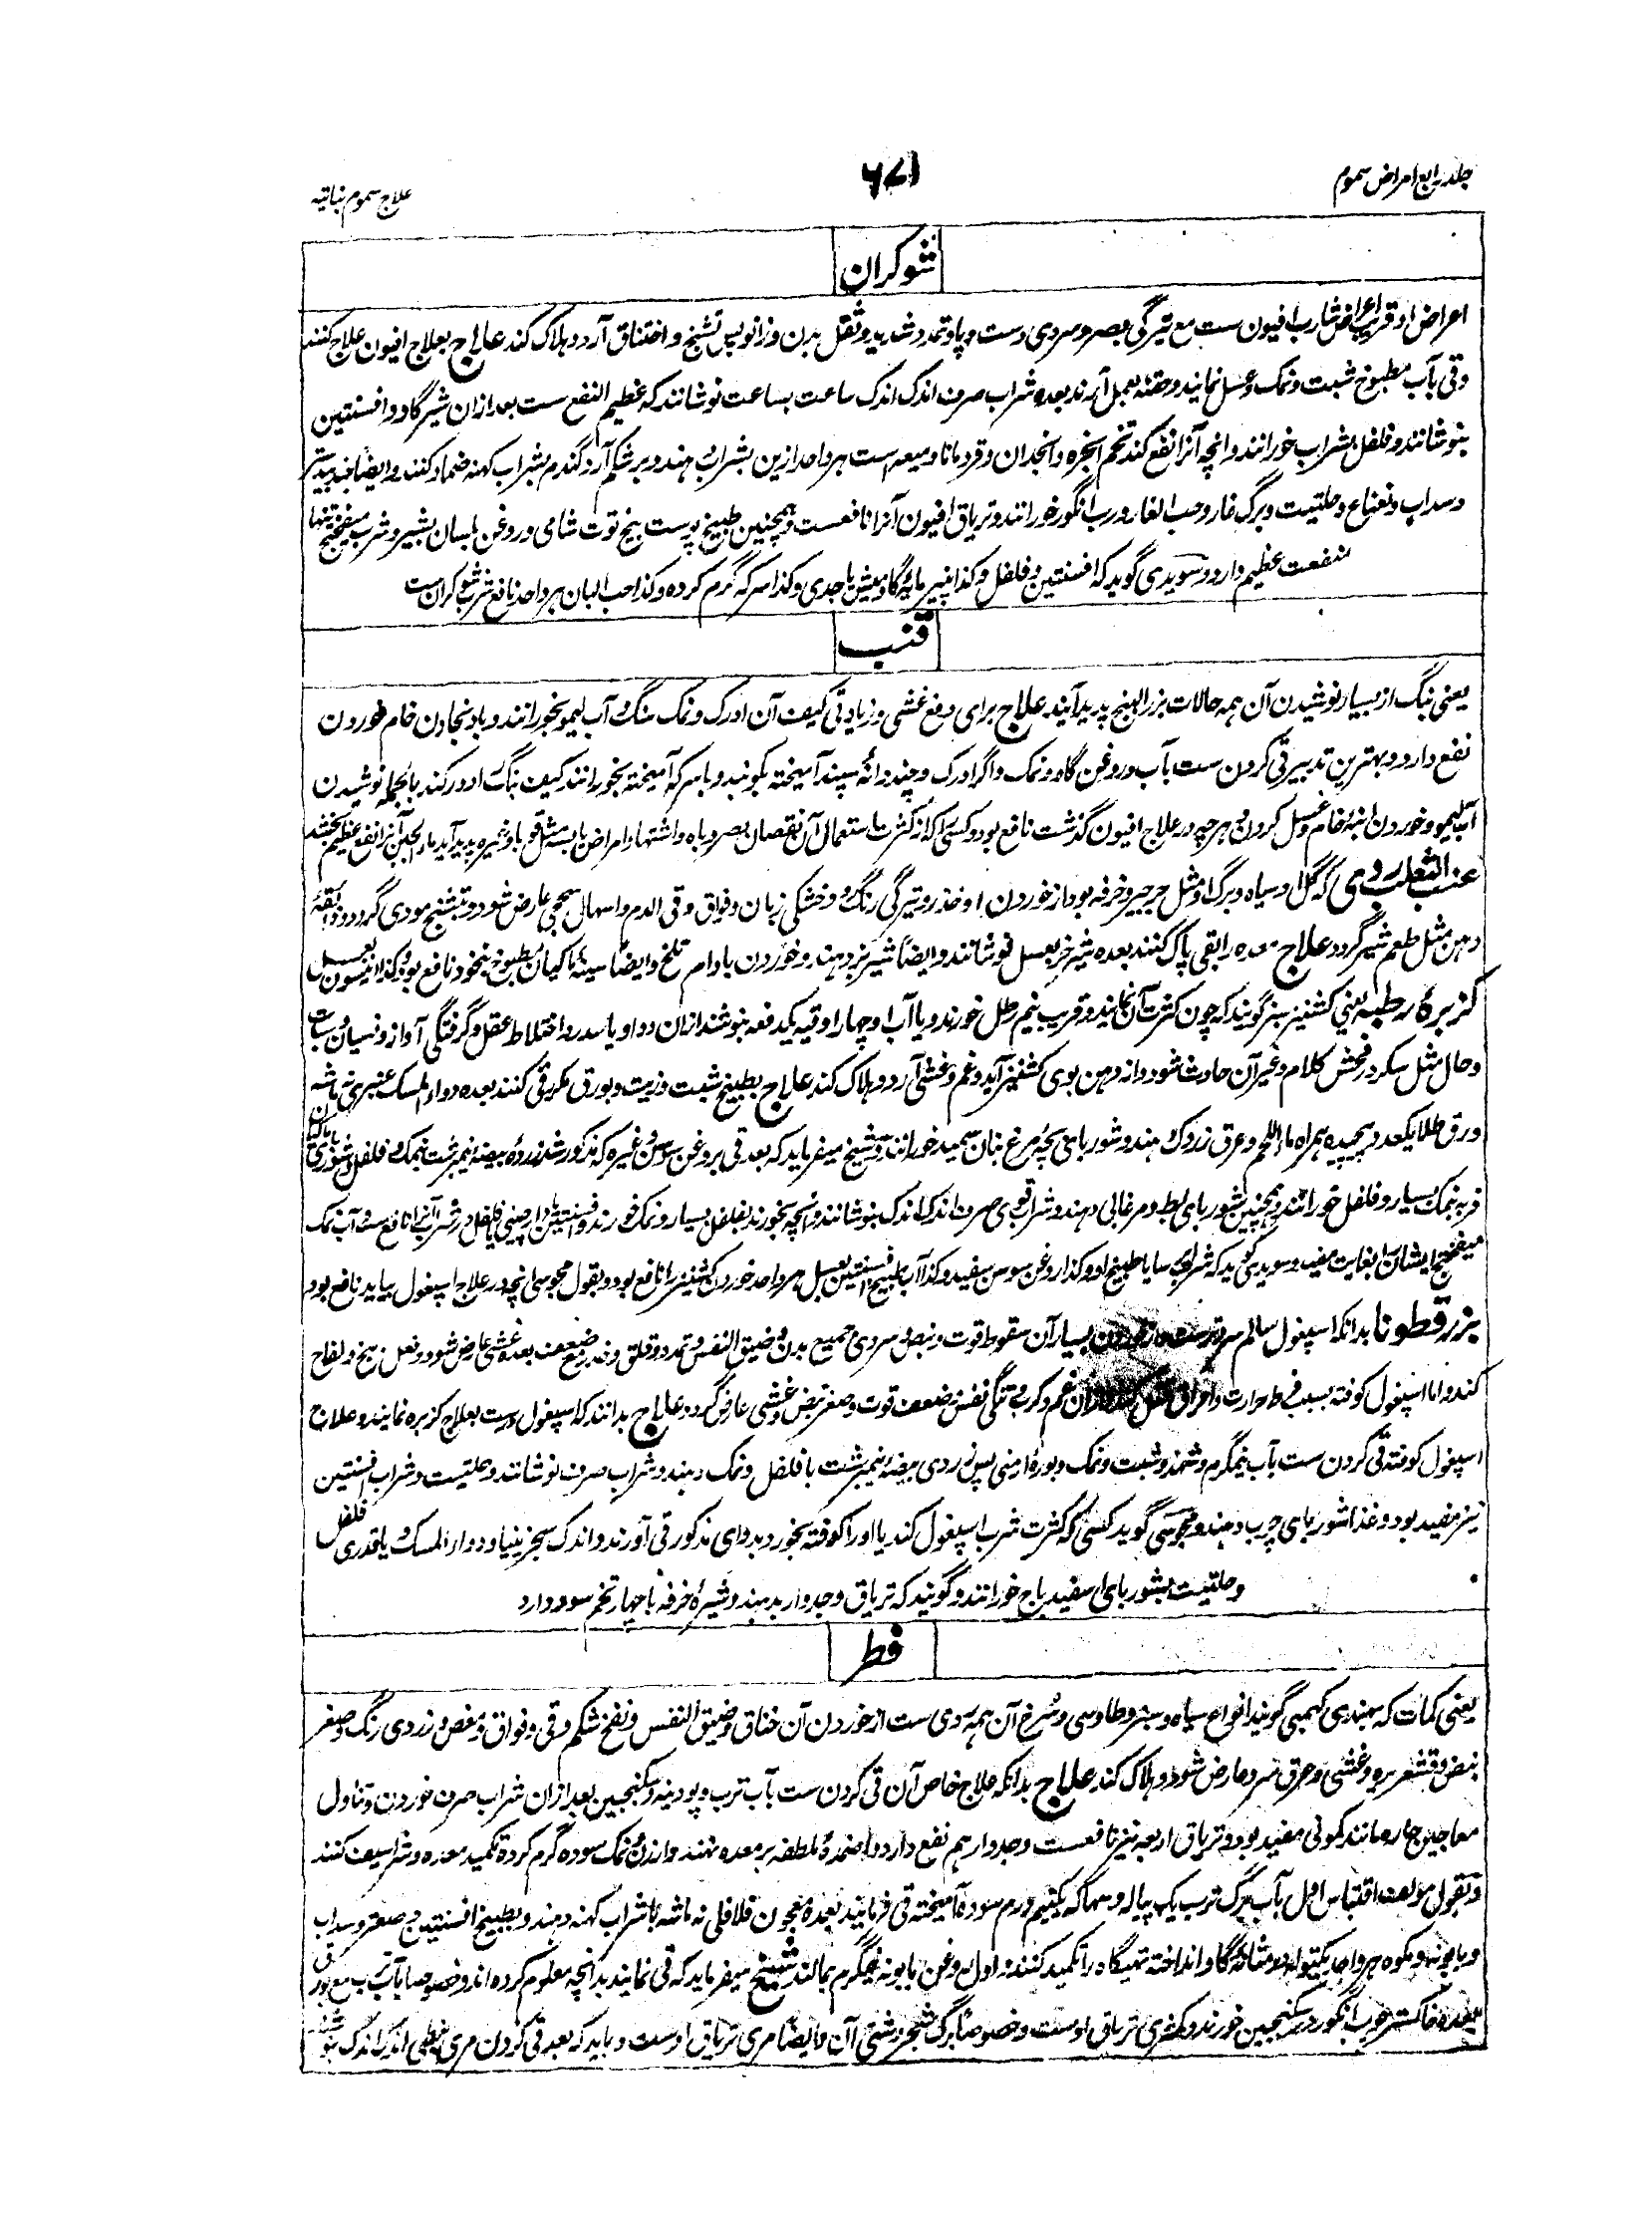 جلد رابع امراض سموم
۶۷۱
علاج سموم نباتیه
شوکران
اعراض او قریب اعراض شارب افیون ست مع تیرگی بصر و سردی دست و پا و تمدد شدید و ثقل بدن و زانو پس تشنج و اختناق آرد و هلاک کند علاج بعلاج افیون علاج کنند
و قی بآب مطبوخ شبت و نمک و عسل نمایند و حقنه بعمل آرند بعده شراب صرف اندک اندک ساعت بساعت نوشانند که عظیم النفع ست بعد ازان شیر گاو و افسنتین
بنوشانند و فلفل بشراب خورانند و انچه آنرا نفع کند تخم انجره و انجدان و قردمانا و میعه است هر واحد ازین بشراب دهند و بر شکم آرد گندم بشراب کهنه ضماد کنند و ایضا جندبیدستر
و سداب و نعناع و حلتیت و برگ غار و حب الغار و رب انگور خورانند و تریاق افیون آنرا نافعست و همچنین طبیخ پوست بیخ توت شامی و روغن بلسان بشیر و شرب میفختج تنها
منفعت عظیم دارد و سویدی گوید که افسنتین و فلفل و کذا پنیر مایه گاومیش یا جدی و کذا سرکه گرم کرده و کذا حب البان هر واحد نافع شرب شوکران ست
قنب
یعنی بنگ از بسیار نوشیدن آن همه حالات بزر البنج پدید آیند علاج برای دفع غشی و زیادتی کیف آن ادرک و نمک سنگ و آب لیمو بخورانند و بادنجان خام خوردن
نفع دارد و بهترین تدبیر قی کردن ست بآب و روغن گاو و نمک و اگر ادرک و چند دانه سپند آمیخته بکوبند و با سرکه آمیخته بخورانند کیف بنگ را دور کند بالجمله نوشیدن
آب لیمو و خوردن انبه خام و غسل کردن و هر چه در علاج افیون گذشت نافع بود و کسی را که از کثرت استعمال آن نقصان بصر و باه و اشتها و امراض یابسه مثل قوبا و غیره پدید آید ماء الجبن آنرا نفع عظیم بخشد
عنب الثعلب ردی که گل او سیاه و برگ او مثل جرجیر و خرفه بود از خوردن او خدر و تیرگی رنگ و خشکی زبان و فواق و قی الدم و اسهال سحجی عارض شود و بتشنج مودی گردد و ذائقه
دهن مثل طعم شیر گردد علاج معده را بقی پاک کنند بعده شیر خر بعسل نوشانند و ایضا شیر بز دهند و خوردن بادام تلخ و ایضا سینه ماکیان مطبوخ بنخود نافع بود و کذا انیسون بعسل
کزبره رطبه یعنی کشنیز سبز گویند که چون کثرت آن نمایند و قریب نیم رطل خورند و یا آب او چهار اوقیه یکدفعه بنوشند ازان دوار و یا سدر و اختلاط عقل و گرفتگی آواز و نسیان و سبات
و حال مثل سکر در فحش کلام و غیر آن حادث شود و از دهن بوی کشنیز آید و غم و غشی آرد و هلاک کند علاج بطبیخ شبت و زیت و بورق مکرر قی کنند بعده دواء المسک عنبری نه ماشه
ورق طلا یکعدد پیچیده همراه ماء اللحم و عرق زردک دهند و شوربای بچه مرغ بنان سمید خورانند و شیخ میفرماید که بعد قی بروغن سوسن و غیره که مذکور شد زرده بیضه نیمبرشت بنمک و فلفل و شوربای ماکیان
فربه بنمک بسیار و فلفل خورانند و همچنین شوربای بط و مرغابی دهند و شراب قوی صرف اندک اندک بنوشانند و انچه بخورند بفلفل بسیار و نمک خورند و افسنتین و دارچینی یا فلفل در شراب آنرا نافع ست و آب نمک
میفختج ایشان را بغایت مفید و سویدی گوید که شراب سایا طبیخ او و کذا روغن سوسن سفید و کذا آب طبیخ افسنتین بعسل هر واحد خوردن کشنیز را نافع بود و بقول مجوسی انچه در علاج اسپغول بیاید نافع بود
بزر قطونا بدانکه اسپغول سالم سرد ترست و از خوردن بسیار آن سقوط قوت و نبض و سردی جمیع بدن و ضیق النفس و تمدد و قلق و خدر مع ضعف بعده غشی عارض شود و فعل بنج و لفاح
کند و اما اسپغول کوفته بسبب فرط حرارت و احراق قتل کند و ازان غم و کرب و تنگی نفس و ضعف قوت و صغر نبض و غشی عارض گردد علاج بدانند که اسپغول درست بعلاج کزبره نمایند و علاج
اسپغول کوفته قی کردن ست بآب نیمگرم و شهد و شبت و نمک و بوره ارمنی پس زردی بیضه نیمبرشت با فلفل و نمک دهند و شراب صرف نوشانند و حلتیت و شراب افسنتین
نیز مفید بود و غذا شوربای چرب دهند و مجوسی گوید کسی که کثرت شرب اسپغول کند یا او را کوفته بخورد بدوای مذکور قی آورند و اندک سجزینیا و دواء المسک و یا قدری فلفل
و حلتیت بشوربای اسفیدباج خورانند و گویند که تریاق و جدوار بدهند و شیره خرفه با چهار تخم سود دارد
فطر
یعنی کمات که بهندی کهمبی گویند انواع سیاه و سبز و طاوسی و سرخ آن همه ردی ست از خوردن آن خناق و ضیق النفس و نفخ شکم و قی و فواق و مغص و زردی رنگ و صغر
نبض و قشعریره و غشی و عرق سرد عارض شود و هلاک کند علاج بدانکه علاج خاص آن قی کردن ست بآب ترب و پودینه و سکنجبین بعد ازان شراب صرف خوردن و تناول
معاجین حاره مانند کمونی مفید بود و تریاق اربعه نیز نافعست و جدوار هم نفع دارد و اضمده ملطفه بر معده نهند و ارزن و نمک سوده گرم کرده تکمید معده و شراسیف کنند
و بقول مولف اقتباس اول بآب برگ ترب یک پیاله و سهاگه یکنیم درم سوده آمیخته قی فرمایند بعده معجون فلافلی نه ماشه با شراب کهنه دهند و بطبیخ افسنتین و صعتر و سداب
و بابونه و مکوه هر واحد یکتوله در مثانه گاو انداخته تهیگاه را تکمید کنند و اول روغن بابونه نیمگرم بمالند شیخ میفرماید که قی نمایند بدانچه معلوم کرده اند و خصوصا بآب ترب مع بورق
بعده خاکستر چوب انگور در سکنجبین خورند و کمثری تریاق اوست و خصوصا برگ شجر دشتی آن و ایضا مری تریاق اوست و باید که بعد قی کردن مری نبطی اندک اندک بنوشند